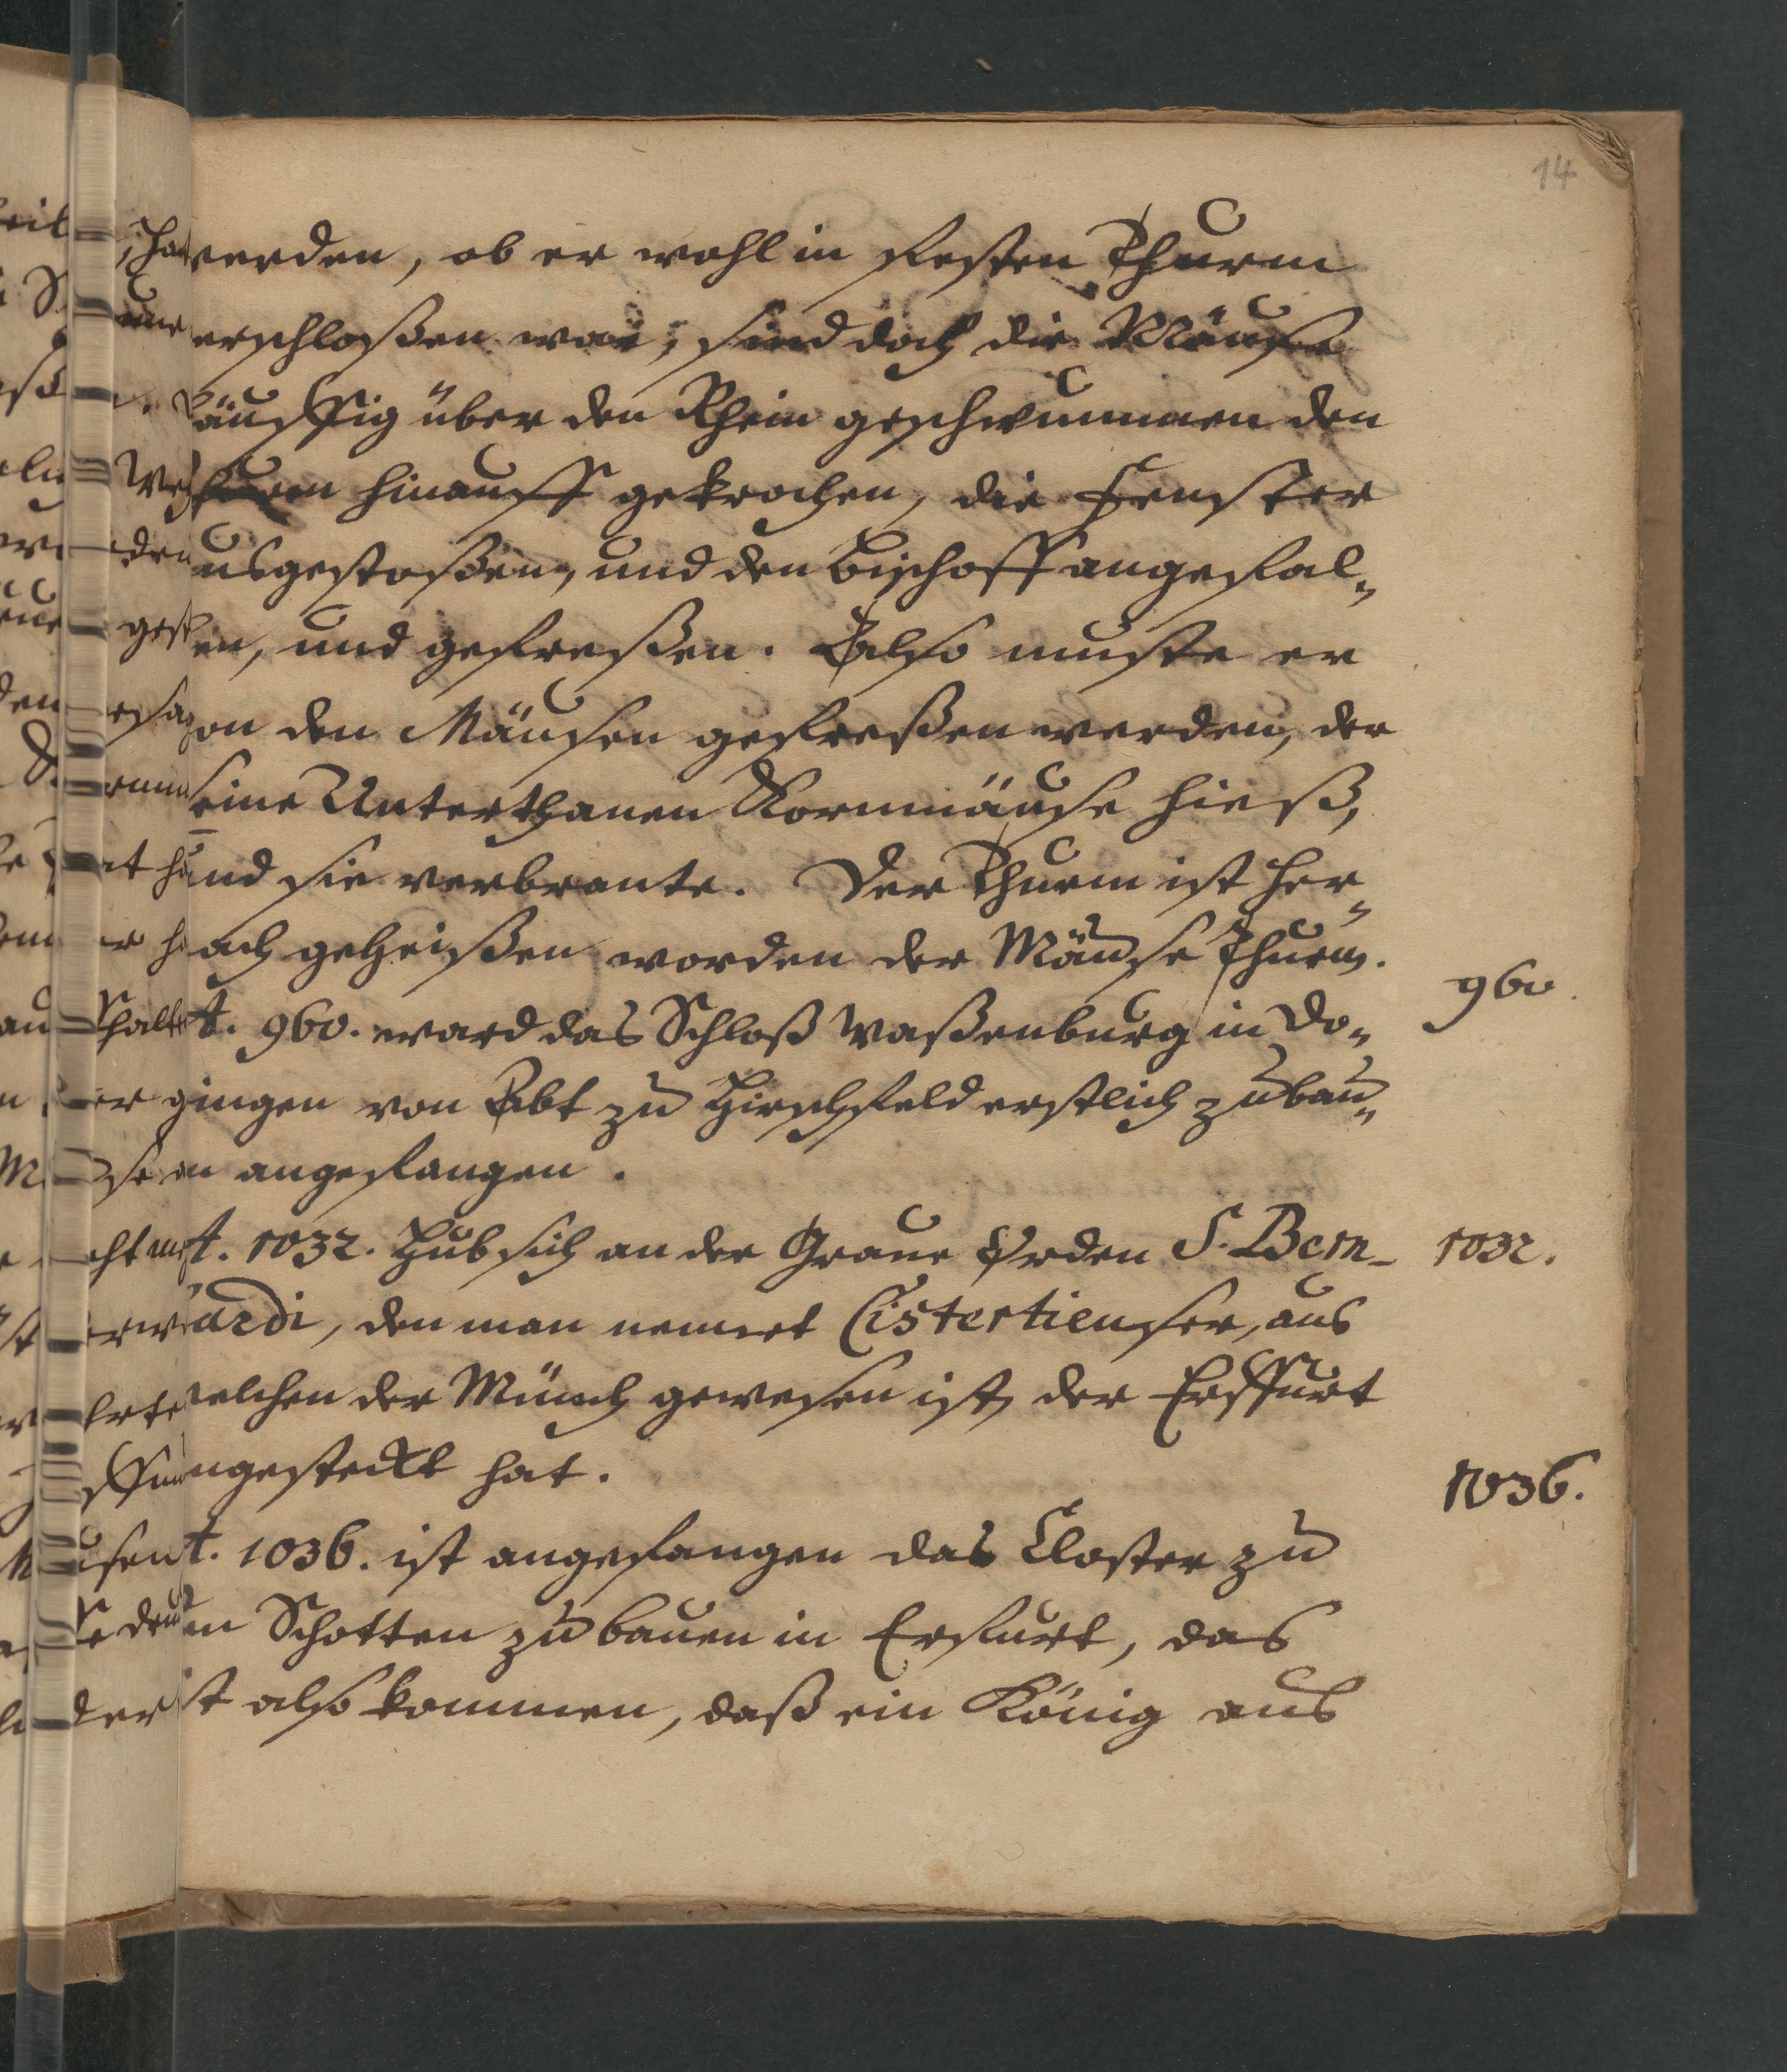 14
werden, ob er wohl in festen Thurm
erschloßen war, sind doch die Mäuse
häuffig über den Rhein geschwummen den
hinauff gekrochen, die Fenster
usgestoßen, und den Bischoff angefal„
en, und gefreßen. Also muste er
on den Mäusen gefreßen werden, der
seine Unterthanen Kornmäuse hieß,
und sie verbrante. Der Thurm ist her„
ach geheißen worden der Mäuse Thurm.
t. 960. ward das Schloß Waßenburg in Dö„
960.
gingen von Abt zu Hirschfeld erstlich zubau„
en angefangen.
t. 1032. Hub sich an der Graue Orden S. Bern-
1032.
ardi, den man nennet Cistertienser, aus
welchen der Münch gewesen ist, der Erffurt
ngesteckt hat.
1036.
t. 1036. ist angefangen das Closter zu
en Schotten zu bauen in Erfurt, das
ist also kommen, daß ein König aus